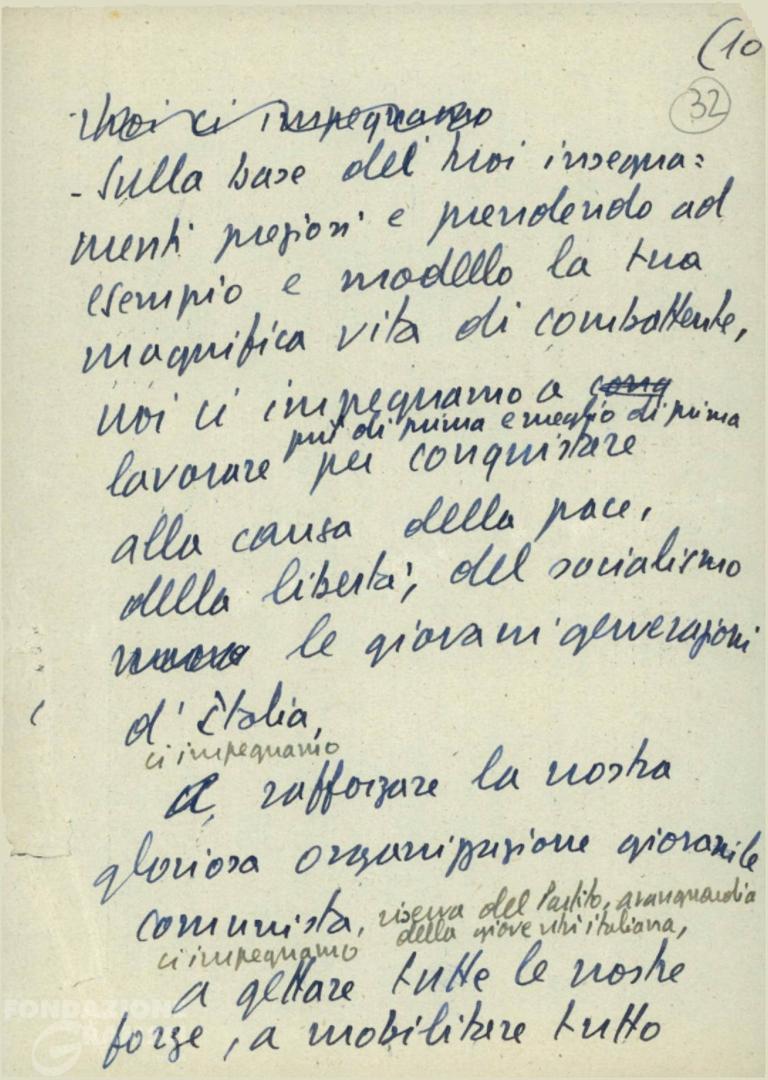 (10
32
Noi ci impegnamo
- Sulla base dei tuoi insegna=
menti preziosi e prendendo ad
esempio e modello la tua
magnifica vita di combattente,
noi ci impegnamo a cong
più di prima e meglio di prima
lavorare per conquistare
alla causa della pace,
della libertà, del socialismo
le giovani generazioni
d'Italia,
ci impegnamo
a rafforzare la nostra
gloriosa organizzazione giovanile
comunista, riserva del Partito, avanguardia
della gioventù italiana,
ci impegnamo
a gettare tutte le nostre
forze, a mobilitare tutto
FONDAZIONE
GRAMSCI